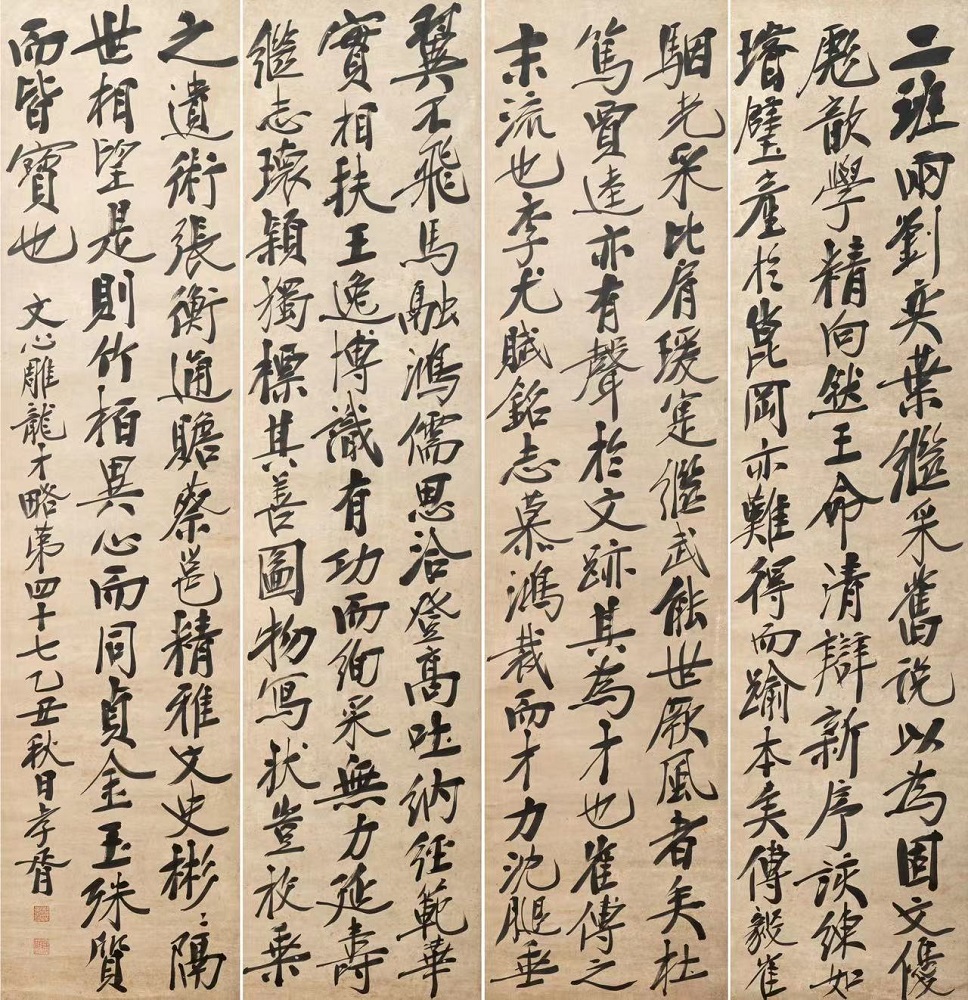 二班兩劉奕業繼采舊說以為固文優
彪歆學精向然王命清辯新序該練如
璿璧產於崑岡亦難得而踰本矣傅毅崔
駰光采比肩瑗寔繼武能世厥風者矣杜
篤賈逵亦有聲於文跡其為才也崔傅之
末流也李尤賦銘志慕鴻裁而才力沈膇垂
翼不飛馬融鴻儒思洽登高吐納經範華
實相扶王逸博識有功而絢采無力延壽
繼志瓌穎獨標其善圖物寫狀豈枚乘
之遺術張衡通贍蔡邕精雅文史彬〻隔
世相望是則竹柏異心而同貞金玉殊質
而皆寶也 文心雕龍才略第四十七乙丑秋日孝胥